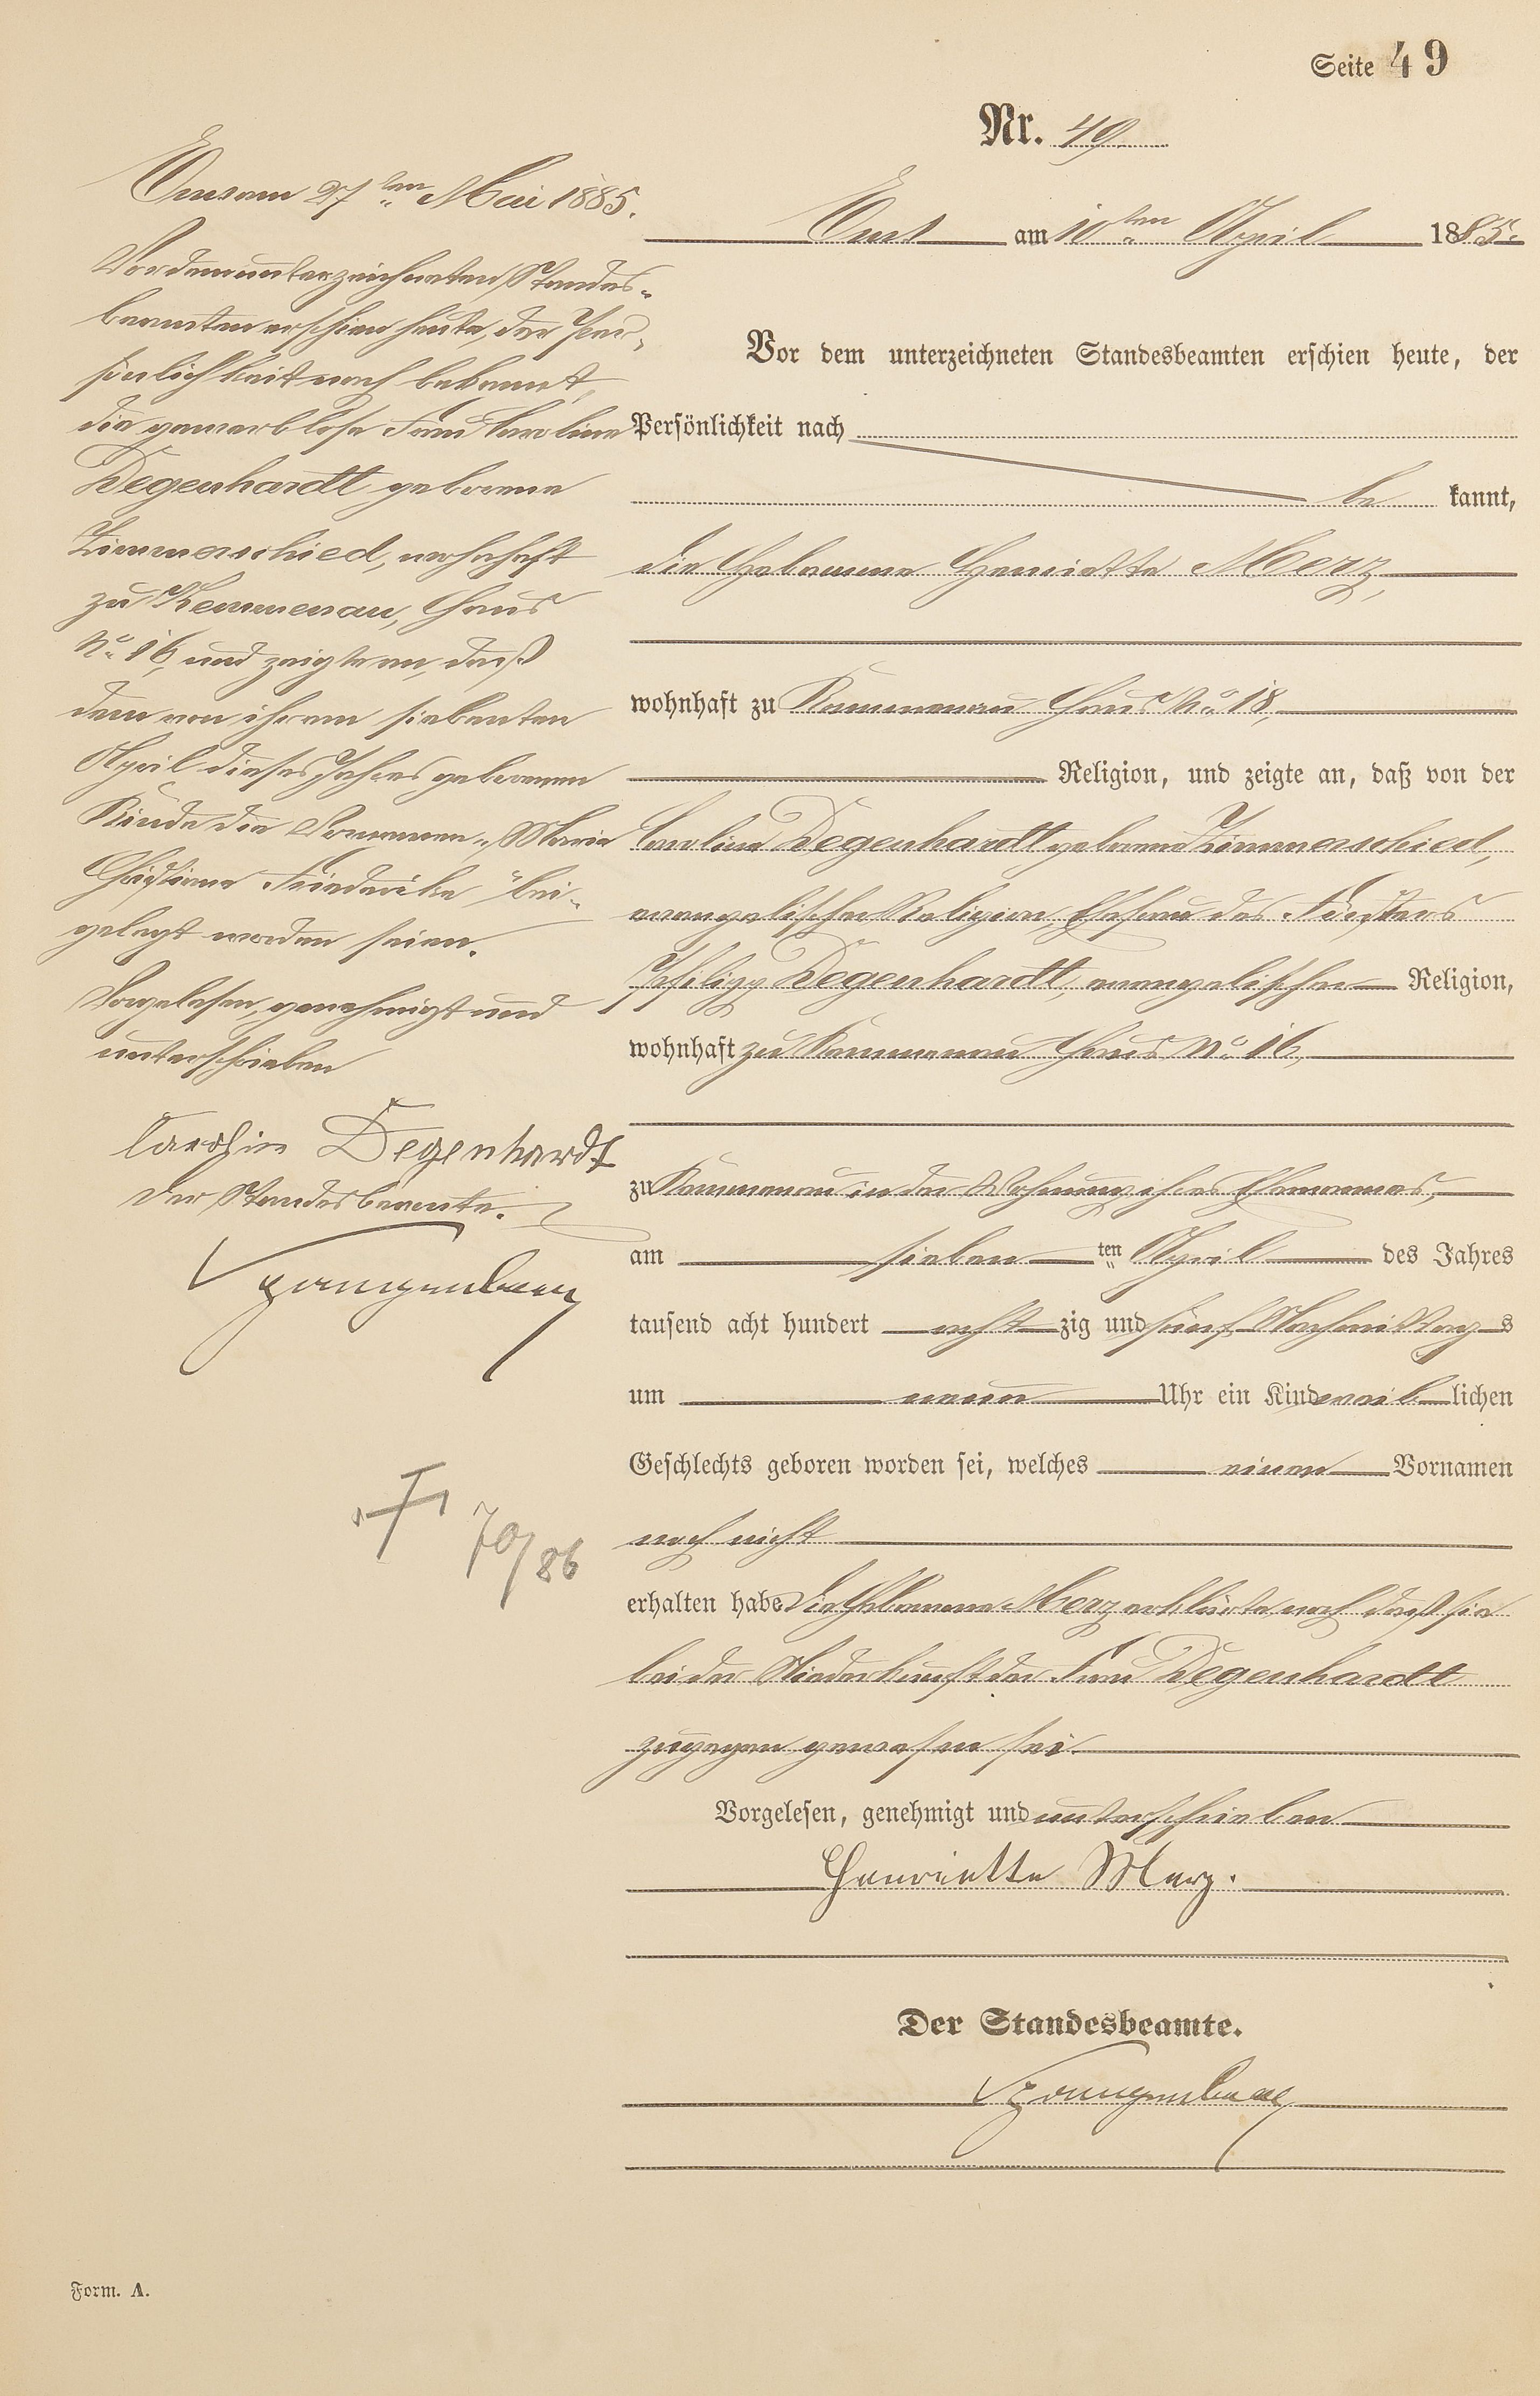 Seite 49
Nr. 49.
Ems am 27ten Mai 1885.
Vor dem unterzeichneten Standes-
beamten erschien heute, der Per-
sönlichkeit nach bekannt,
die gewerblose Frau Caroline
Degenhardt geborene
Zimmerschied, wohnhaft
zu Kemmenau, Haus
No. 16, und zeigte an, daß
dem von ihr am siebenten
April dieses Jahres geborenen
Kinde die Vornamen „Maria
Christiane Friederike" bei-
gelegt worden seien.
Vorgelesen, genehmigt und
unterschrieben
Carolin Degenhardt
Der Standesbeamte.
Spangenberg
† 70/86
Ems am 10ten April 1885.
Vor dem unterzeichneten Standesbeamten erschien heute, der
Persönlichkeit nach
be kannt,
die Hebamme Henriette Merz,
wohnhaft zu Kemmenau Haus No. 18,
Religion, und zeigte an, daß von der
Caroline Degenhardt geborene Zimmerschied,
evangelischer Religion, Ehefrau des Försters
Philipp Degenhardt, evangelischer Religion,
wohnhaft zu Kemmenau Haus No. 16,
zu Kemmenau in der Wohnung ihres Ehemannes,
am sieben ten April des Jahres
tausend acht hundert acht zig und fünf Nachmittag s
um neun Uhr ein Kind weib lichen
Geschlechts geboren worden sei, welches einen Vornamen
noch nicht
erhalten habe. Die Hebamme Merz erklärte noch daß sie
bei der Niederkunft der Frau Degenhardt
zugegen gewesen sei.
Vorgelesen, genehmigt und unterschrieben
Henriette Merz.
Der Standesbeamte.
Spangenberg
Form. A.